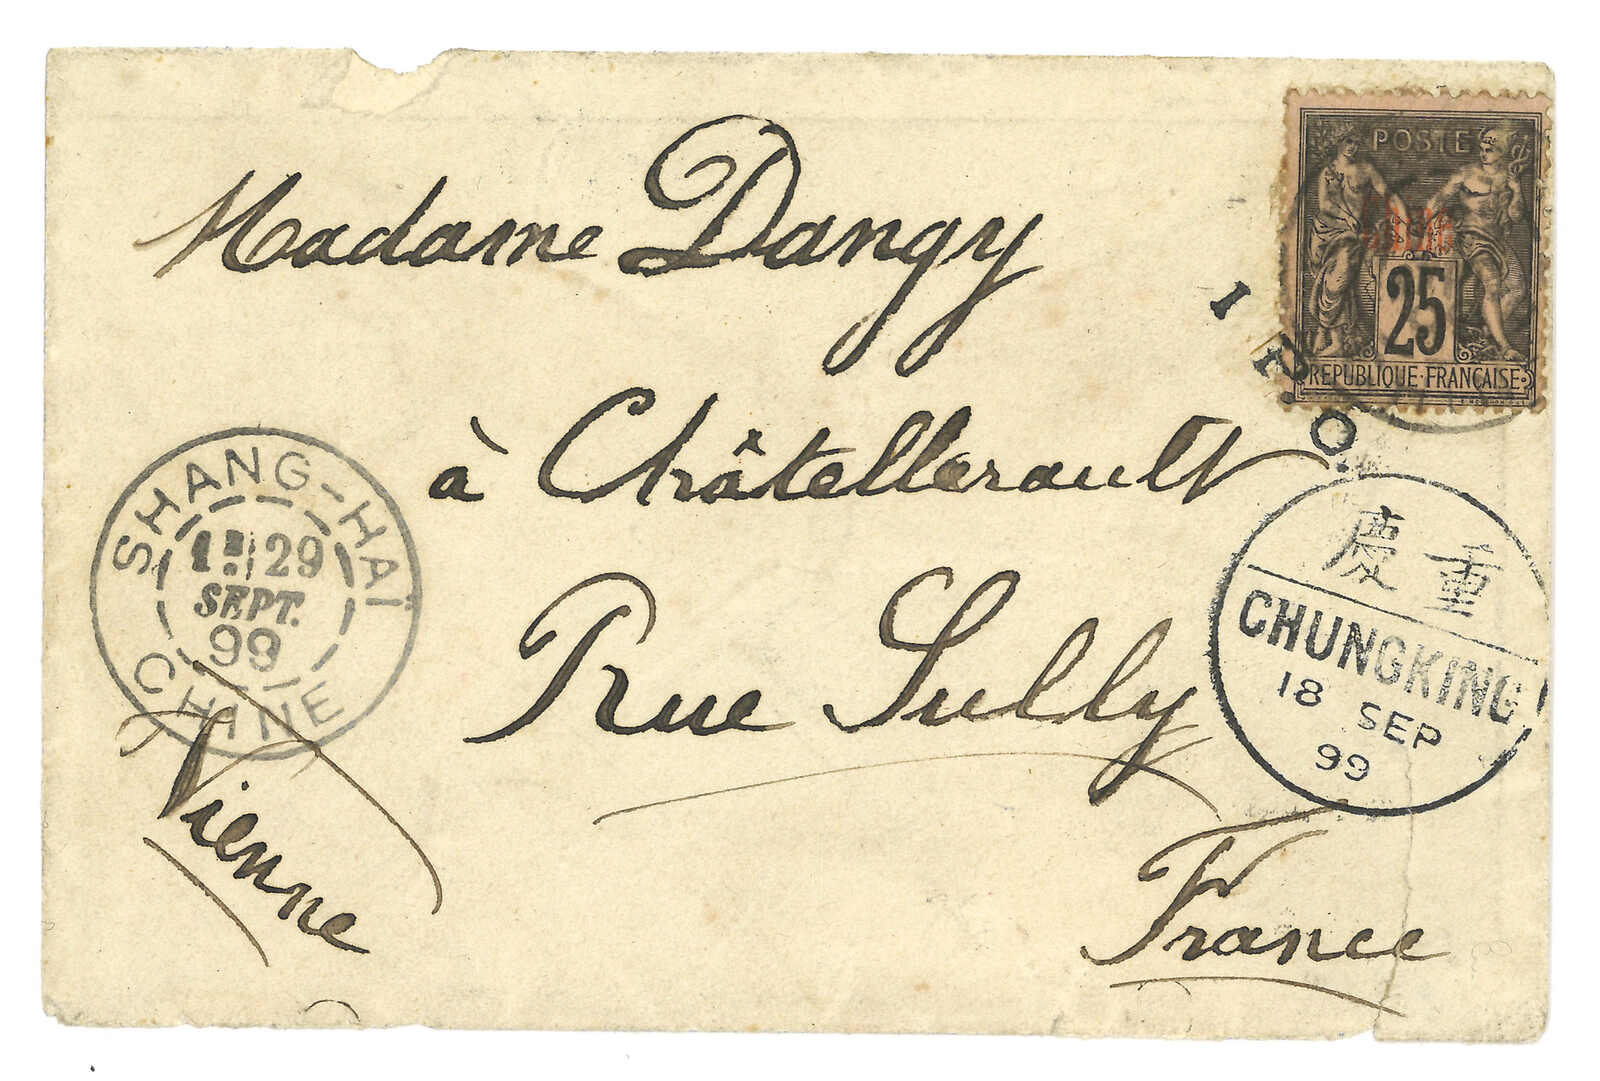 Madame Dangy
à Châtellerault
Rue Sully
Vienne
France
POSTE
Chine
25
REPUBLIQUE·FRANÇAISE
I.P.O.
SHANG-HAÏ
29
SEPT.
99
CHINE
慶重
CHUNGKING
18 SEP
99